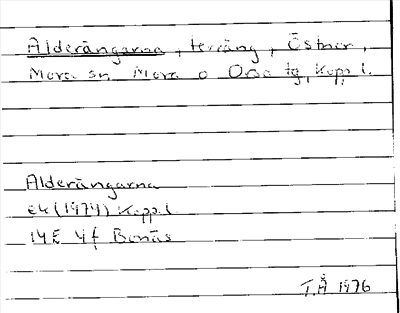 Alderängarna, terräng, Östnor,
Mora sn, Mora o Orsa tg, Kopp. l.
Alderängarna
Ek (1974) Kopp. l
14E 4f Bonäs
T.Å 1976